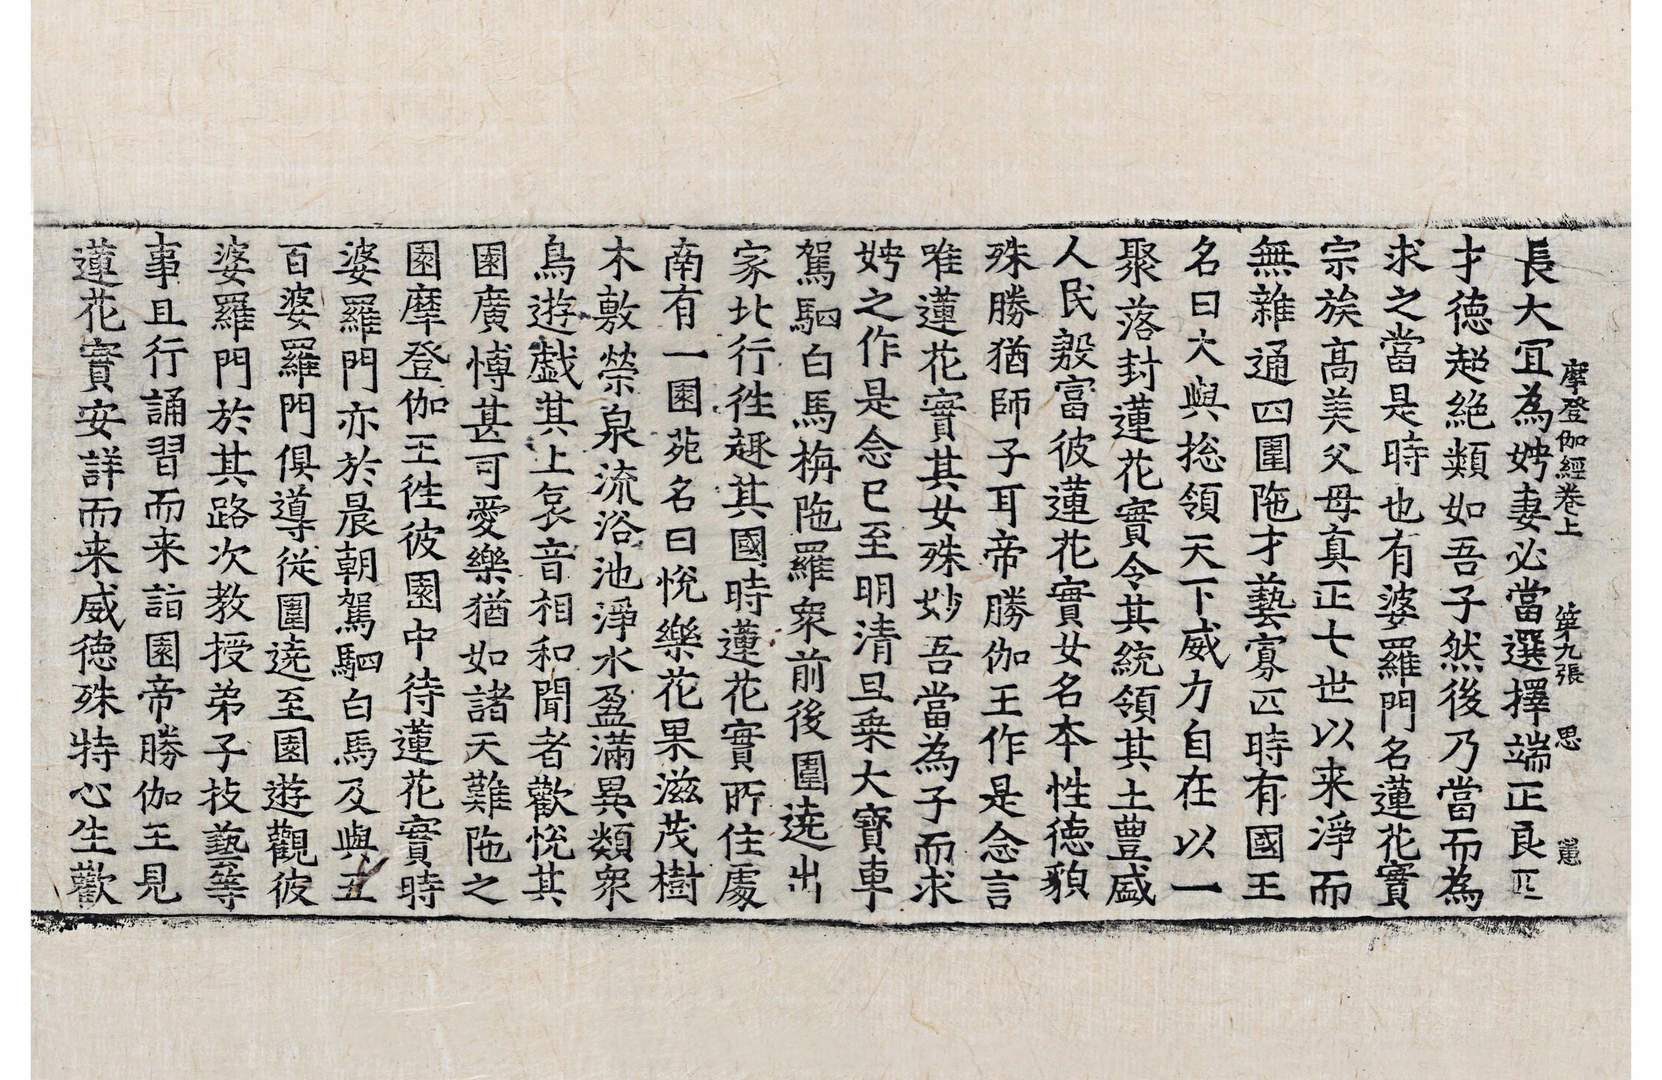 摩登伽經卷上　第九張　思
長大冝為娉妻必當選擇端正良匹
才德超絶類如吾子然後乃當而為
求之當是時也有婆羅門名蓮花實
宗族高美父母真正七世以来淨而
無雜通四圍陁才藝寡匹時有國王
名曰大與捴領天下威力自在以一
聚落封蓮花實令其統領其土豊盛
人民殷富彼蓮花實女名本性德貌
殊勝猶師子耳帝勝伽王作是念言
唯蓮花實其女殊妙吾當為子而求
娉之作是念已至明清旦乗大寶車
駕駟白馬栴陁羅衆前後圍遶出
家北行徃趣其國時蓮花實所住處
南有一園苑名曰悅樂花果滋茂樹
木敷榮泉流浴池淨水盈滿異類衆
鳥遊戱其上哀音相和聞者歡悅其
園廣愽甚可愛樂猶如諸天難陁之
園摩登伽王徃彼園中待蓮花實時
婆羅門亦於晨朝駕駟白馬及與五
百婆羅門俱導從圍遶至園遊觀彼
婆羅門於其路次教授弟子技藝等
事且行誦習而来詣園帝勝伽王見
蓮花實安詳而来威德殊特心生歡